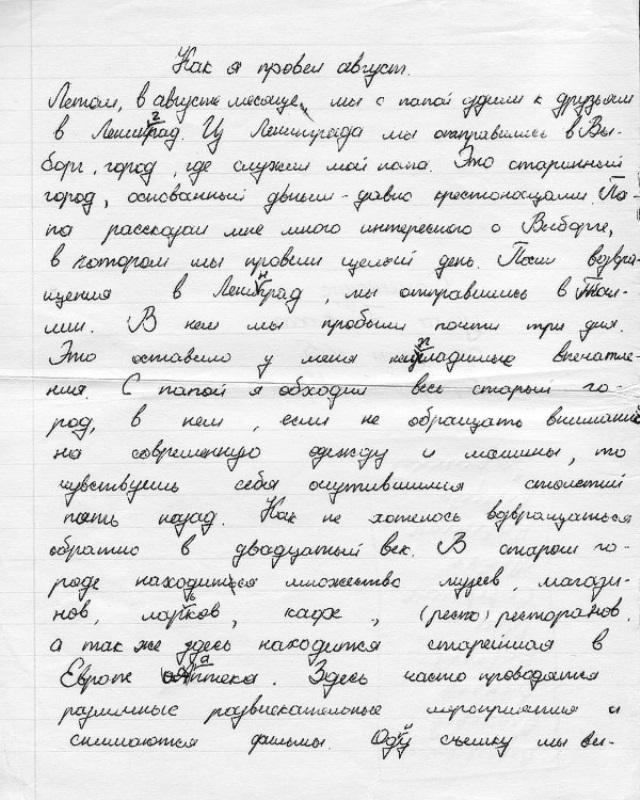 Как я провел август.
Летом, в августе месяце, мы с папой ездили к друзьям
в Ленинград. Из Ленинграда мы отправились в Вы-
борг, город, где служил мой папа. Это старинный
город, основанный давным-давно крестоносцами. Па-
па рассказал мне много интересного о Выборге,
в котором мы провели целый день. После возвра-
щения в Ленинград, мы отправились в Тал-
лин. В нем мы пробыли почти три дня.
Это оставило у меня неизгладимые впечатле-
ния. С папой я обходил весь старый го-
род, в нем, если не обращать внимание
на современную одежду и машины, то
чувствуешь себя очутившимся столетий
пять назад. Как не хотелось возвращаться
обратно в двадцатый век. В старом го-
роде находится множество музеев, магази-
нов, ларьков, кафе, (ресто) ресторанов,
а так же здесь находится старейшая в
Европе аптека. Здесь часто проводятся
различные развлекательные мероприятия и
снимаются фильмы. Одну съемку мы ви-